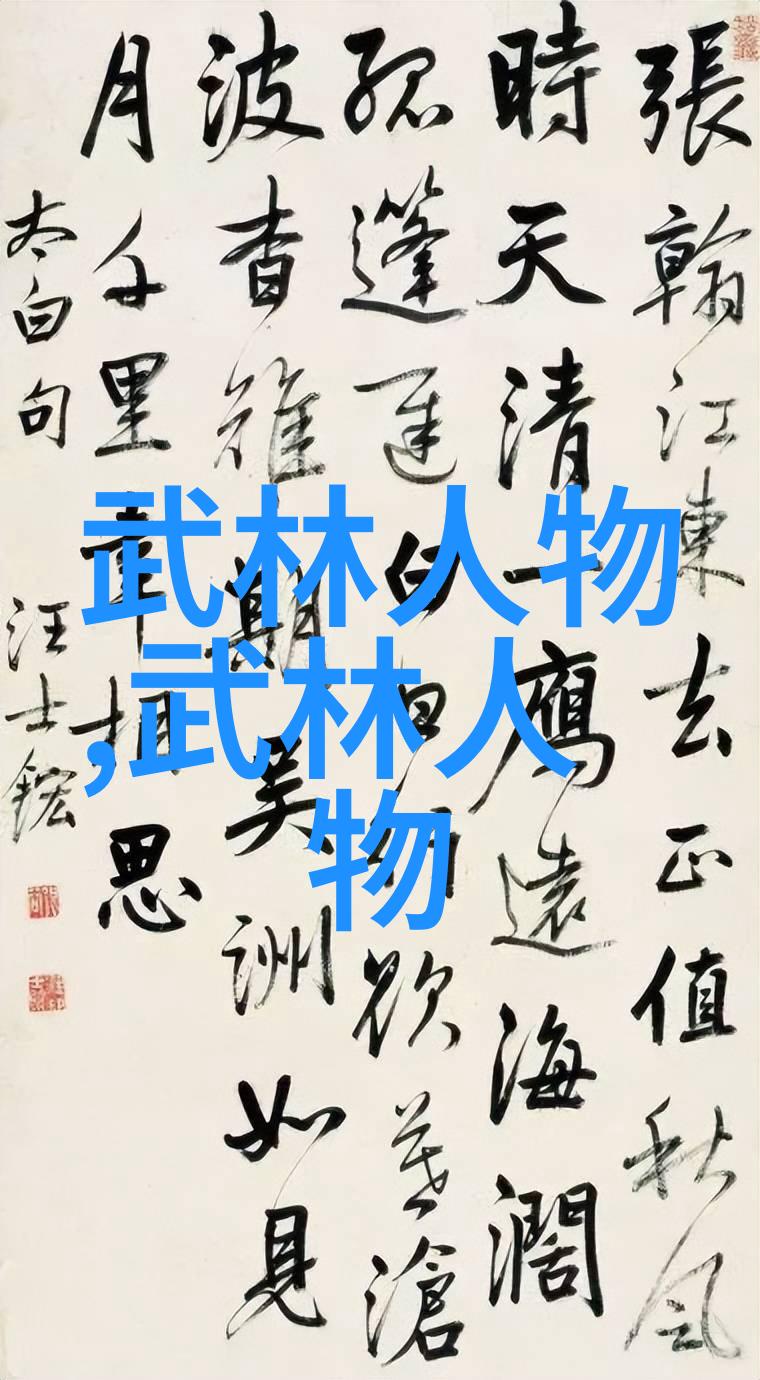 張翰江東去正值秋風
時天清一鴈遠海濶
孤篷遲白日欲暮滄
波杳難期吳洲如見
月千里幸相思
太白句 汪士鋐
武林人物
,武林人
物